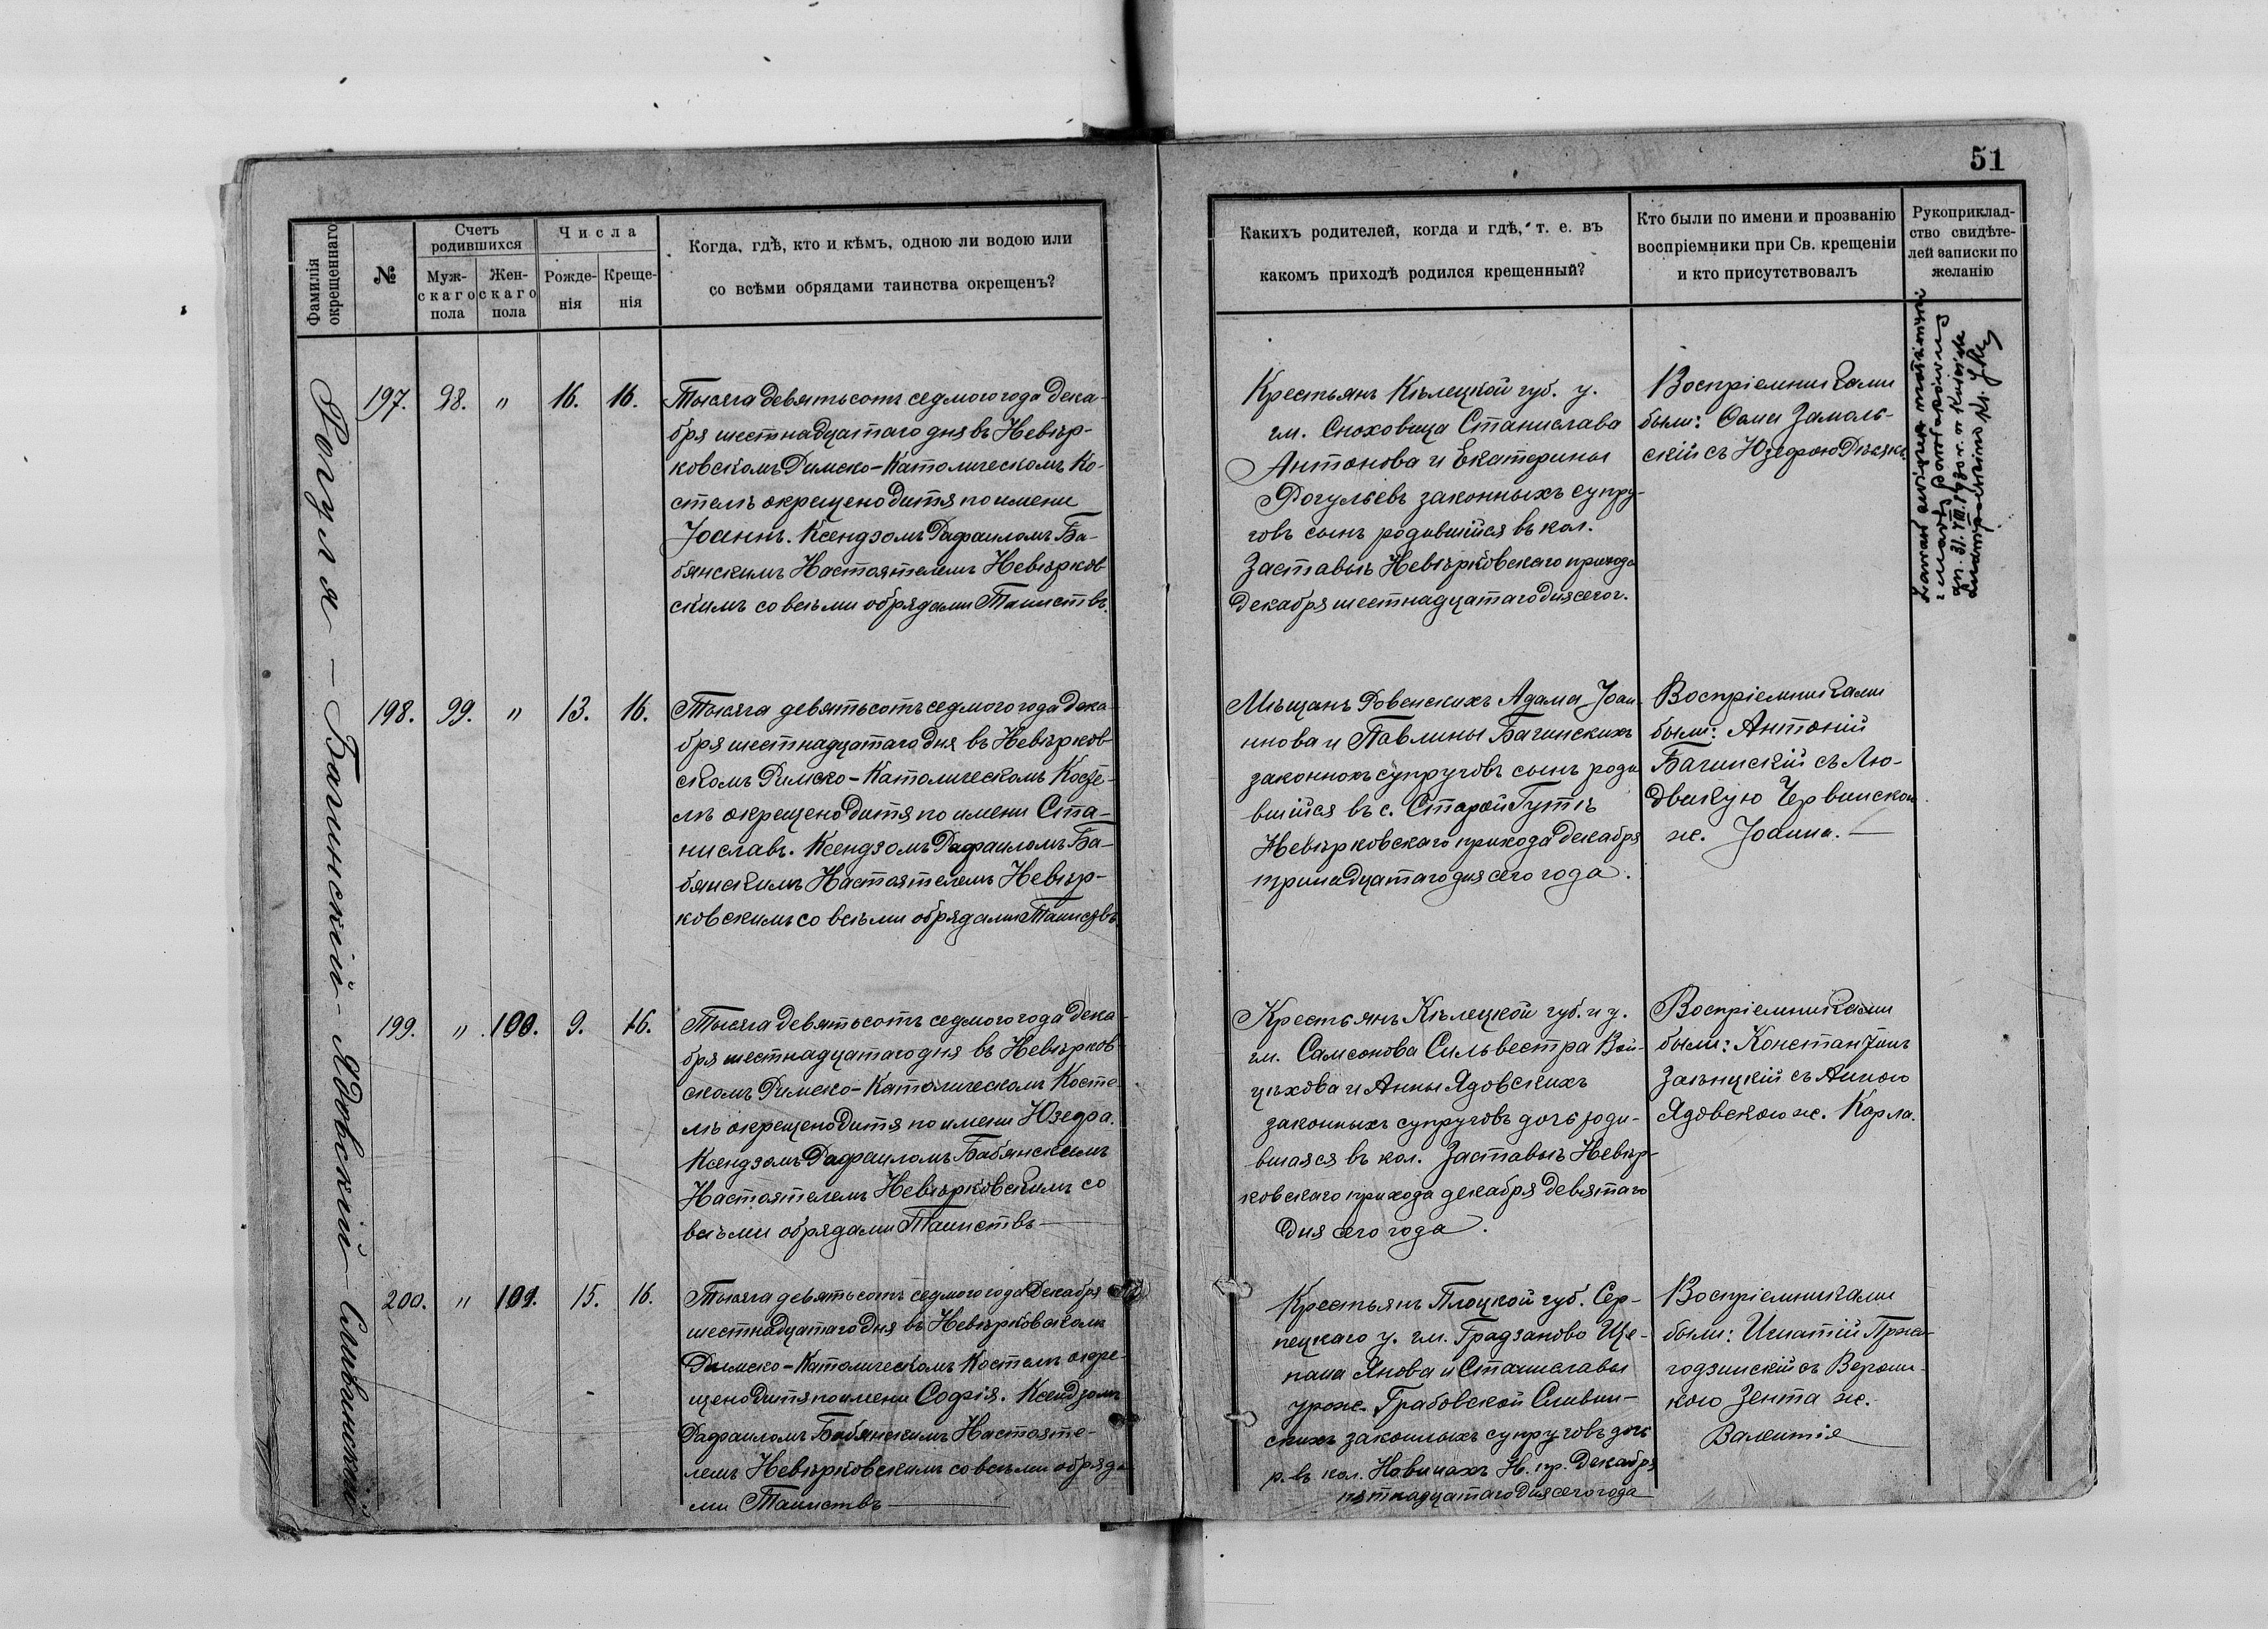 51
Фамилія окрещеннаго
№
Счетъ родившихся
Муж-скаго пола
Жен-скаго пола
Числа
Рожде-нія
Креще-нія
Когда, гдѣ, кто и кѣмъ, одною ли водою или
со всѣми обрядами таинства окрещенъ?
Какихъ родителей, когда и гдѣ, т. е. въ
какомъ приходѣ родился крещенный?
Кто были по имени и прозванію
воспріемники при Св. крещеніи
и кто присутствовалъ
Рукоприклад-
ство свидѣте-
лей записки по
желанію
Рогуля – Багинскій – Ядовскій – Сливинскій
197. 98. " 16. 16.
Тысяча девятьсотъ седмого года дека-
бря шестнадцатаго дня въ Невѣр-
ковскомъ Римско-Католическомъ Ко-
стелѣ окрещено дитя по имени
Іоаннъ. Ксендзомъ Рафаиломъ Ба-
бянскимъ Настоятелемъ Невѣрков-
скимъ со всѣми обрядами Таинствъ.
Крестьянъ Кѣлецкой губ. у.
гм. Сноховица Станислава
Антонова и Екатерины
Рогульевъ законныхъ супру-
говъ сынъ родившійся въ кол.
Заставьѣ Невѣрковскаго прихода
декабря шестнадцатаго дня сего г.
Воспріемниками
были: Ѳома Замоль-
скій съ Юзефою
31. VIII. 1930 r.
198. 99. " 13. 16.
Тысяча девятьсотъ седмого года дека-
бря шестнадцатаго дня въ Невѣрков-
скомъ Римско-Католическомъ Косте-
лѣ окрещено дитя по имени Ста-
ниславъ. Ксендзомъ Рафаиломъ Ба-
бянскимъ Настоятелемъ Невѣр-
ковскимъ со всѣми обрядами Таинствъ
Мѣщанъ Ровенскихъ Адама Іоан-
нова и Павлины Багинскихъ
законныхъ супруговъ сынъ роди
вшійся въ с. Старой Гутѣ
Невѣрковскаго прихода декабря
тринадцатаго дня сего года.
Воспріемниками
были: Антоній
Багинскій съ Лю-
двикую Червинскою
ж. Іоанна. —
199. " 100. 9. 16.
Тысяча девятьсотъ седмого года дека-
бря шестнадцатаго дня въ Невѣрков-
скомъ Римско-Католическомъ Косте-
лѣ окрещено дитя по имени Юзефа.
Ксендзомъ Рафаиломъ Бабянскимъ
Настоятелемъ Невѣрковскимъ со
всѣми обрядами Таинствъ —
Крестьянъ Кѣлецкой губ. и у.
гм. Самсонова Сильвестра Вой-
цѣхова и Анны Ядовскихъ
законныхъ супруговъ дочь роди-
вшаяся въ кол. Заставьѣ Невѣр-
ковскаго прихода декабря девятаго
дня сего года.
Воспріемниками
были: Константинъ
съ Анною
Ядовскою ж. Карла.
200. " 101. 15. 16.
Тысяча девятьсотъ седмого года Декабря
шестнадцатаго дня въ Невѣрковскомъ
Римско-Католическомъ Костелѣ окре-
щено дитя по имени Софія. Ксендзомъ
Рафаиломъ Бабянскимъ Настояте-
лемъ Невѣрковскимъ со всѣми обряда
ми Таинствъ —
Крестьянъ Плоцкой губ. Сер-
пецкаго у. гм. Градзаново Ще-
пана Янова и Станиславы
урож. Грабовской Сливин-
скихъ законныхъ супруговъ дочь
р. въ кол. Новинахъ Н. пр. Декабря
пятнадцатаго дня сего года
Воспріемниками
были: Игнатій Прже-
годзинскій съ Верони-
кою Зента ж.
Валентія